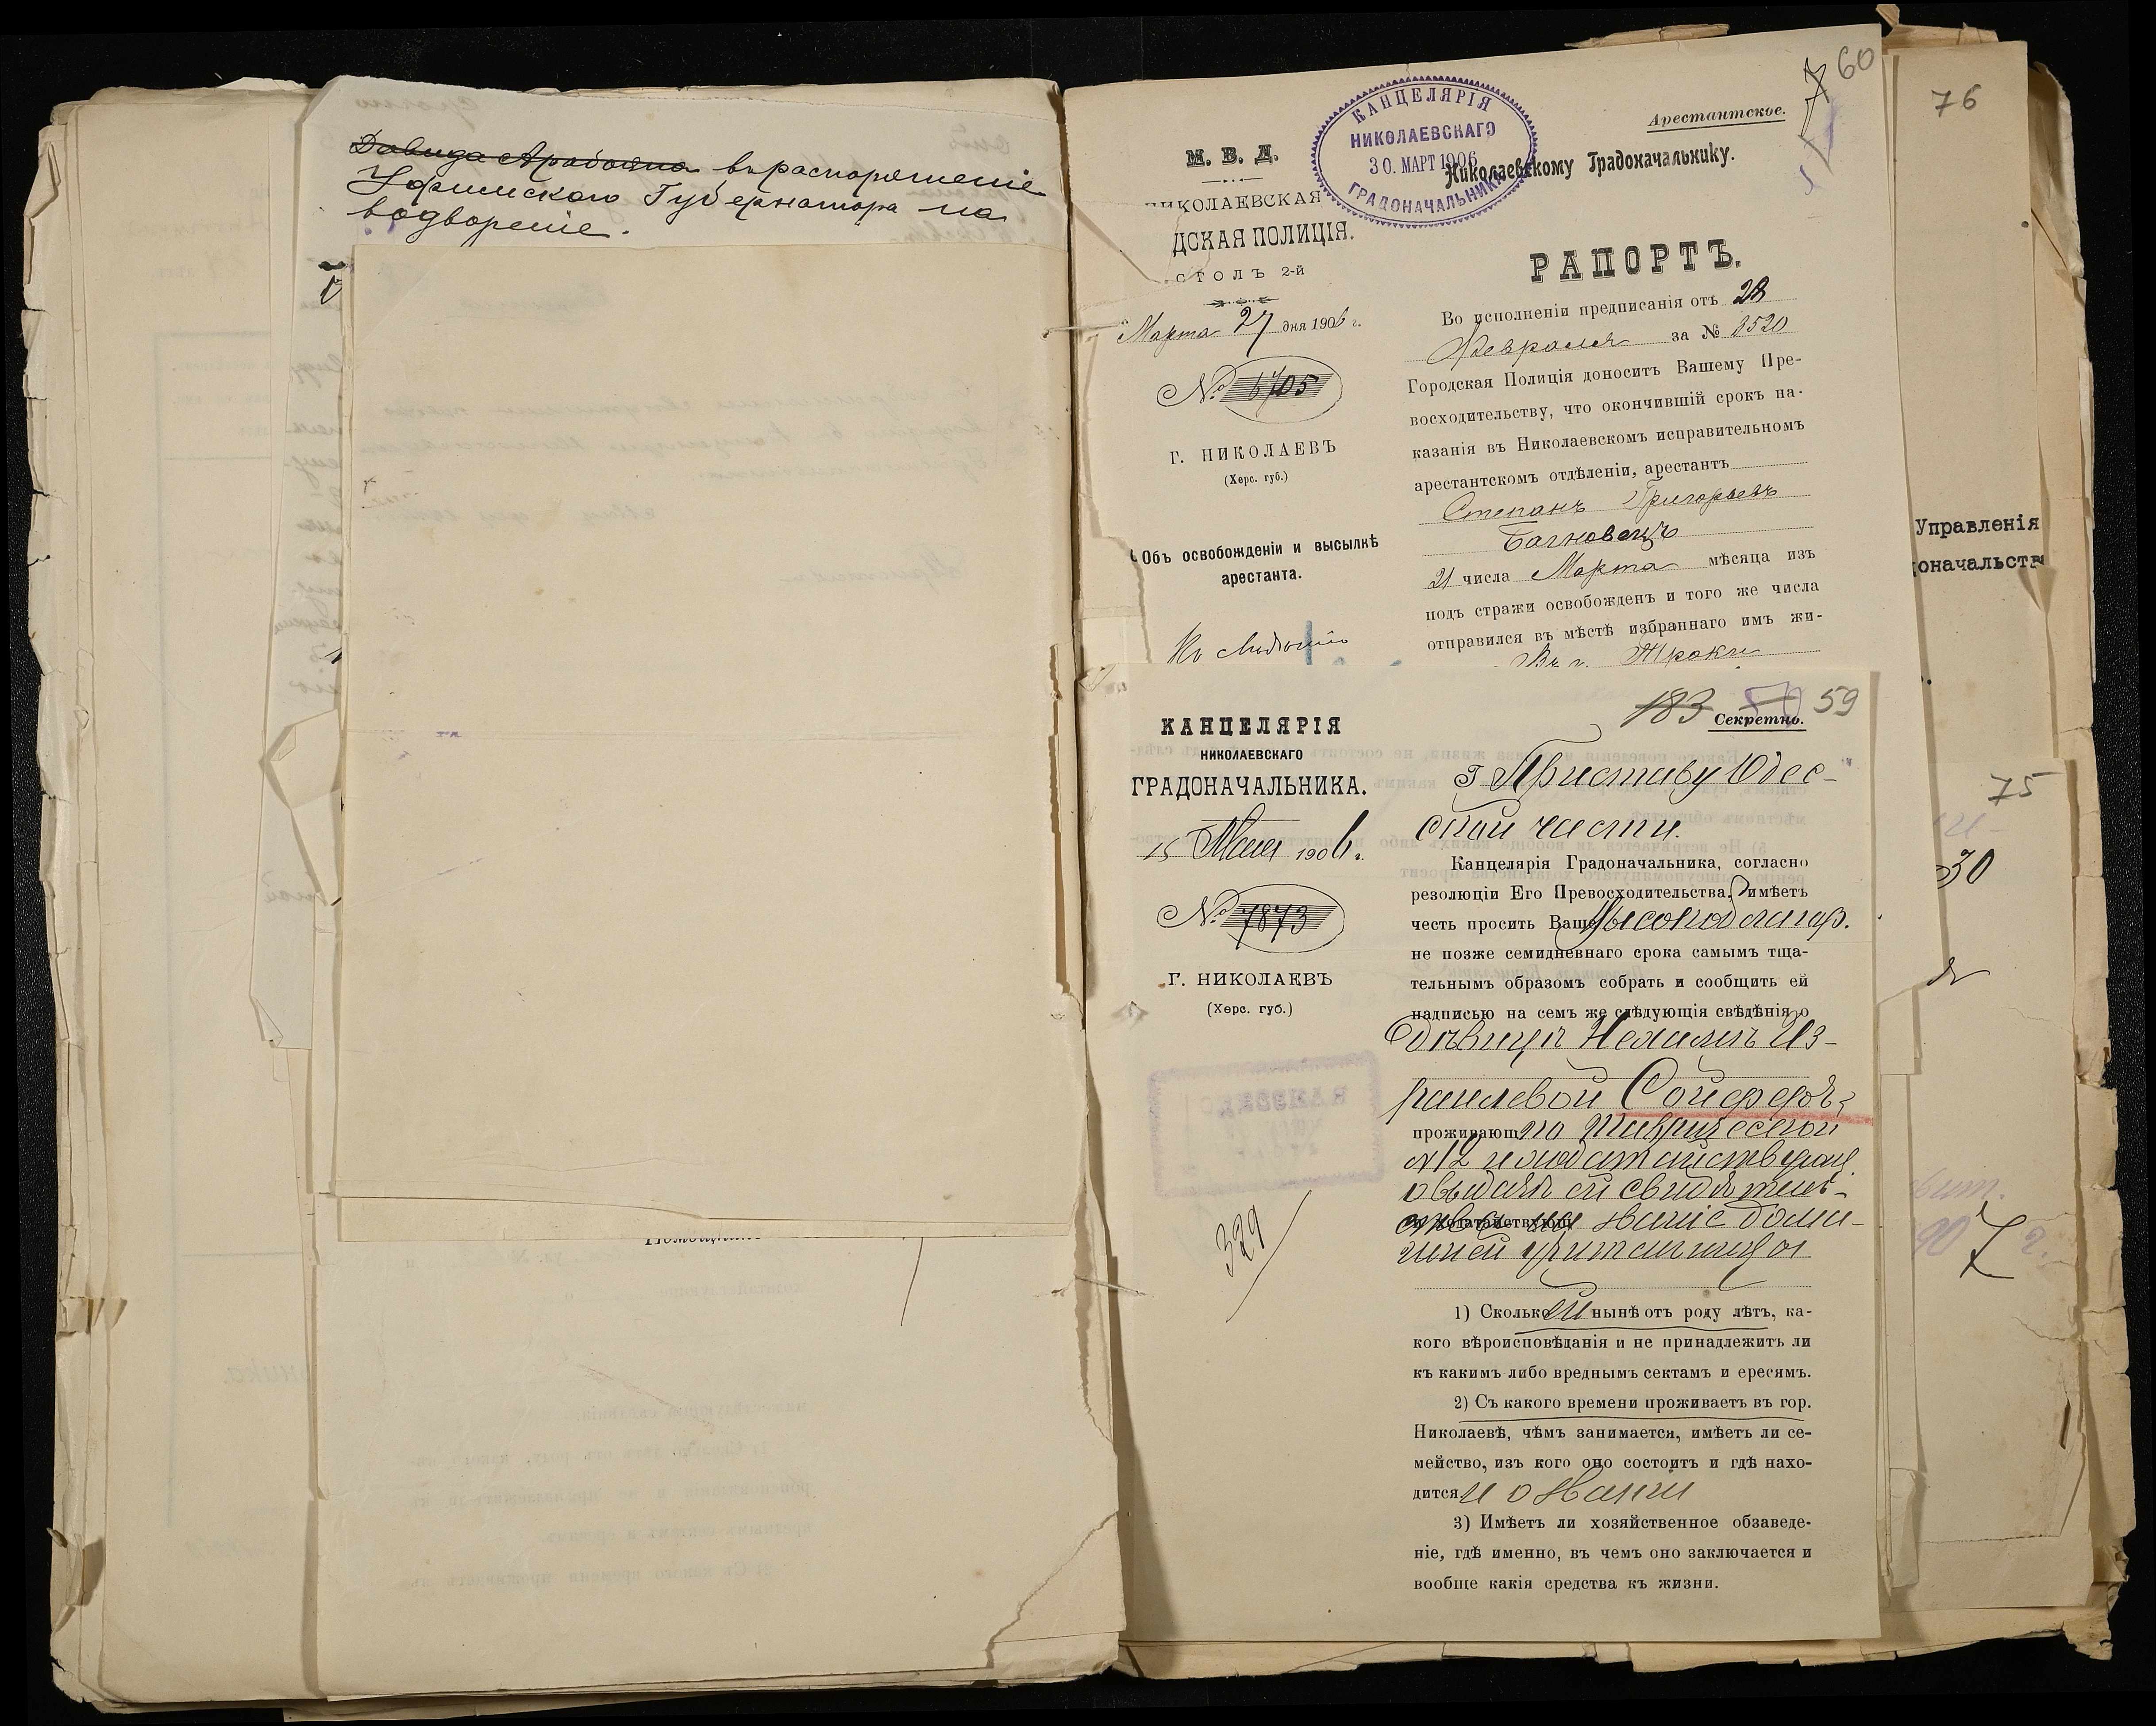 Давида Арабаяна въ распоряженіе
Уфимскаго Губернатора на
водвореніе.
60
Арестантское.
КАНЦЕЛЯРІЯ
НИКОЛАЕВСКАГО
30. МАРТ 1906
ГРАДОНАЧАЛЬНИКА
М. В. Д.
НИКОЛАЕВСКАЯ
ДСКАЯ ПОЛИЦІЯ.
СТОЛЪ 2-й
Марта 27 дня 1906 г.
№ 6705
Г. НИКОЛАЕВЪ
(Херс. губ.)
Объ освобожденіи и высылкѣ
арестанта.
Николаевскому Градоначальнику.
РАПОРТЪ.
Во исполненіи предписанія отъ 28
Февраля за № 3520
Городская Полиція доноситъ Вашему Пре-
восходительству, что окончившій срокъ на-
казанія въ Николаевскомъ исправительномъ
арестантскомъ отдѣленіи, арестантъ
Степанъ Григорьевъ
21 числа Марта мѣсяца изъ
подъ стражи освобожденъ и того же числа
отправился въ мѣстѣ избраннаго имъ жи-
Въ г. Троки
183 59
Секретно.
КАНЦЕЛЯРІЯ
НИКОЛАЕВСКАГО
ГРАДОНАЧАЛЬНИКА.
15 Мая 1906 г.
№ 7873
Г. НИКОЛАЕВЪ
(Херс. губ.)
329
Г Приставу Одес-
ской части.
Канцелярія Градоначальника, согласно
резолюціи Его Превосходительства, имѣетъ
честь просить Ваше Высокоблагор.
не позже семидневнаго срока самымъ тща-
тельнымъ образомъ собрать и сообщить ей
надписью на семъ же слѣдующія свѣдѣнія о
дѣвицѣ Нехамѣ Из-
раилевой Сойферъ,
проживающ по Таврической
№ 12 и ходатайствующ.
о выдачѣ ей свидѣтель-
ства на званіе дома-
шней учительницы
1) Сколько ей нынѣ отъ роду лѣтъ, ка-
кого вѣроисповѣданія и не принадлежитъ ли
къ какимъ либо вреднымъ сектамъ и ересямъ.
2) Съ какого времени проживаетъ въ гор.
Николаевѣ, чѣмъ занимается, имѣетъ ли се-
мейство, изъ кого оно состоитъ и гдѣ нахо-
дится и о званіи
3) Имѣетъ ли хозяйственное обзаведе-
ніе, гдѣ именно, въ чемъ оно заключается и
вообще какія средства къ жизни.
76
Управленія
оначальств
75
30